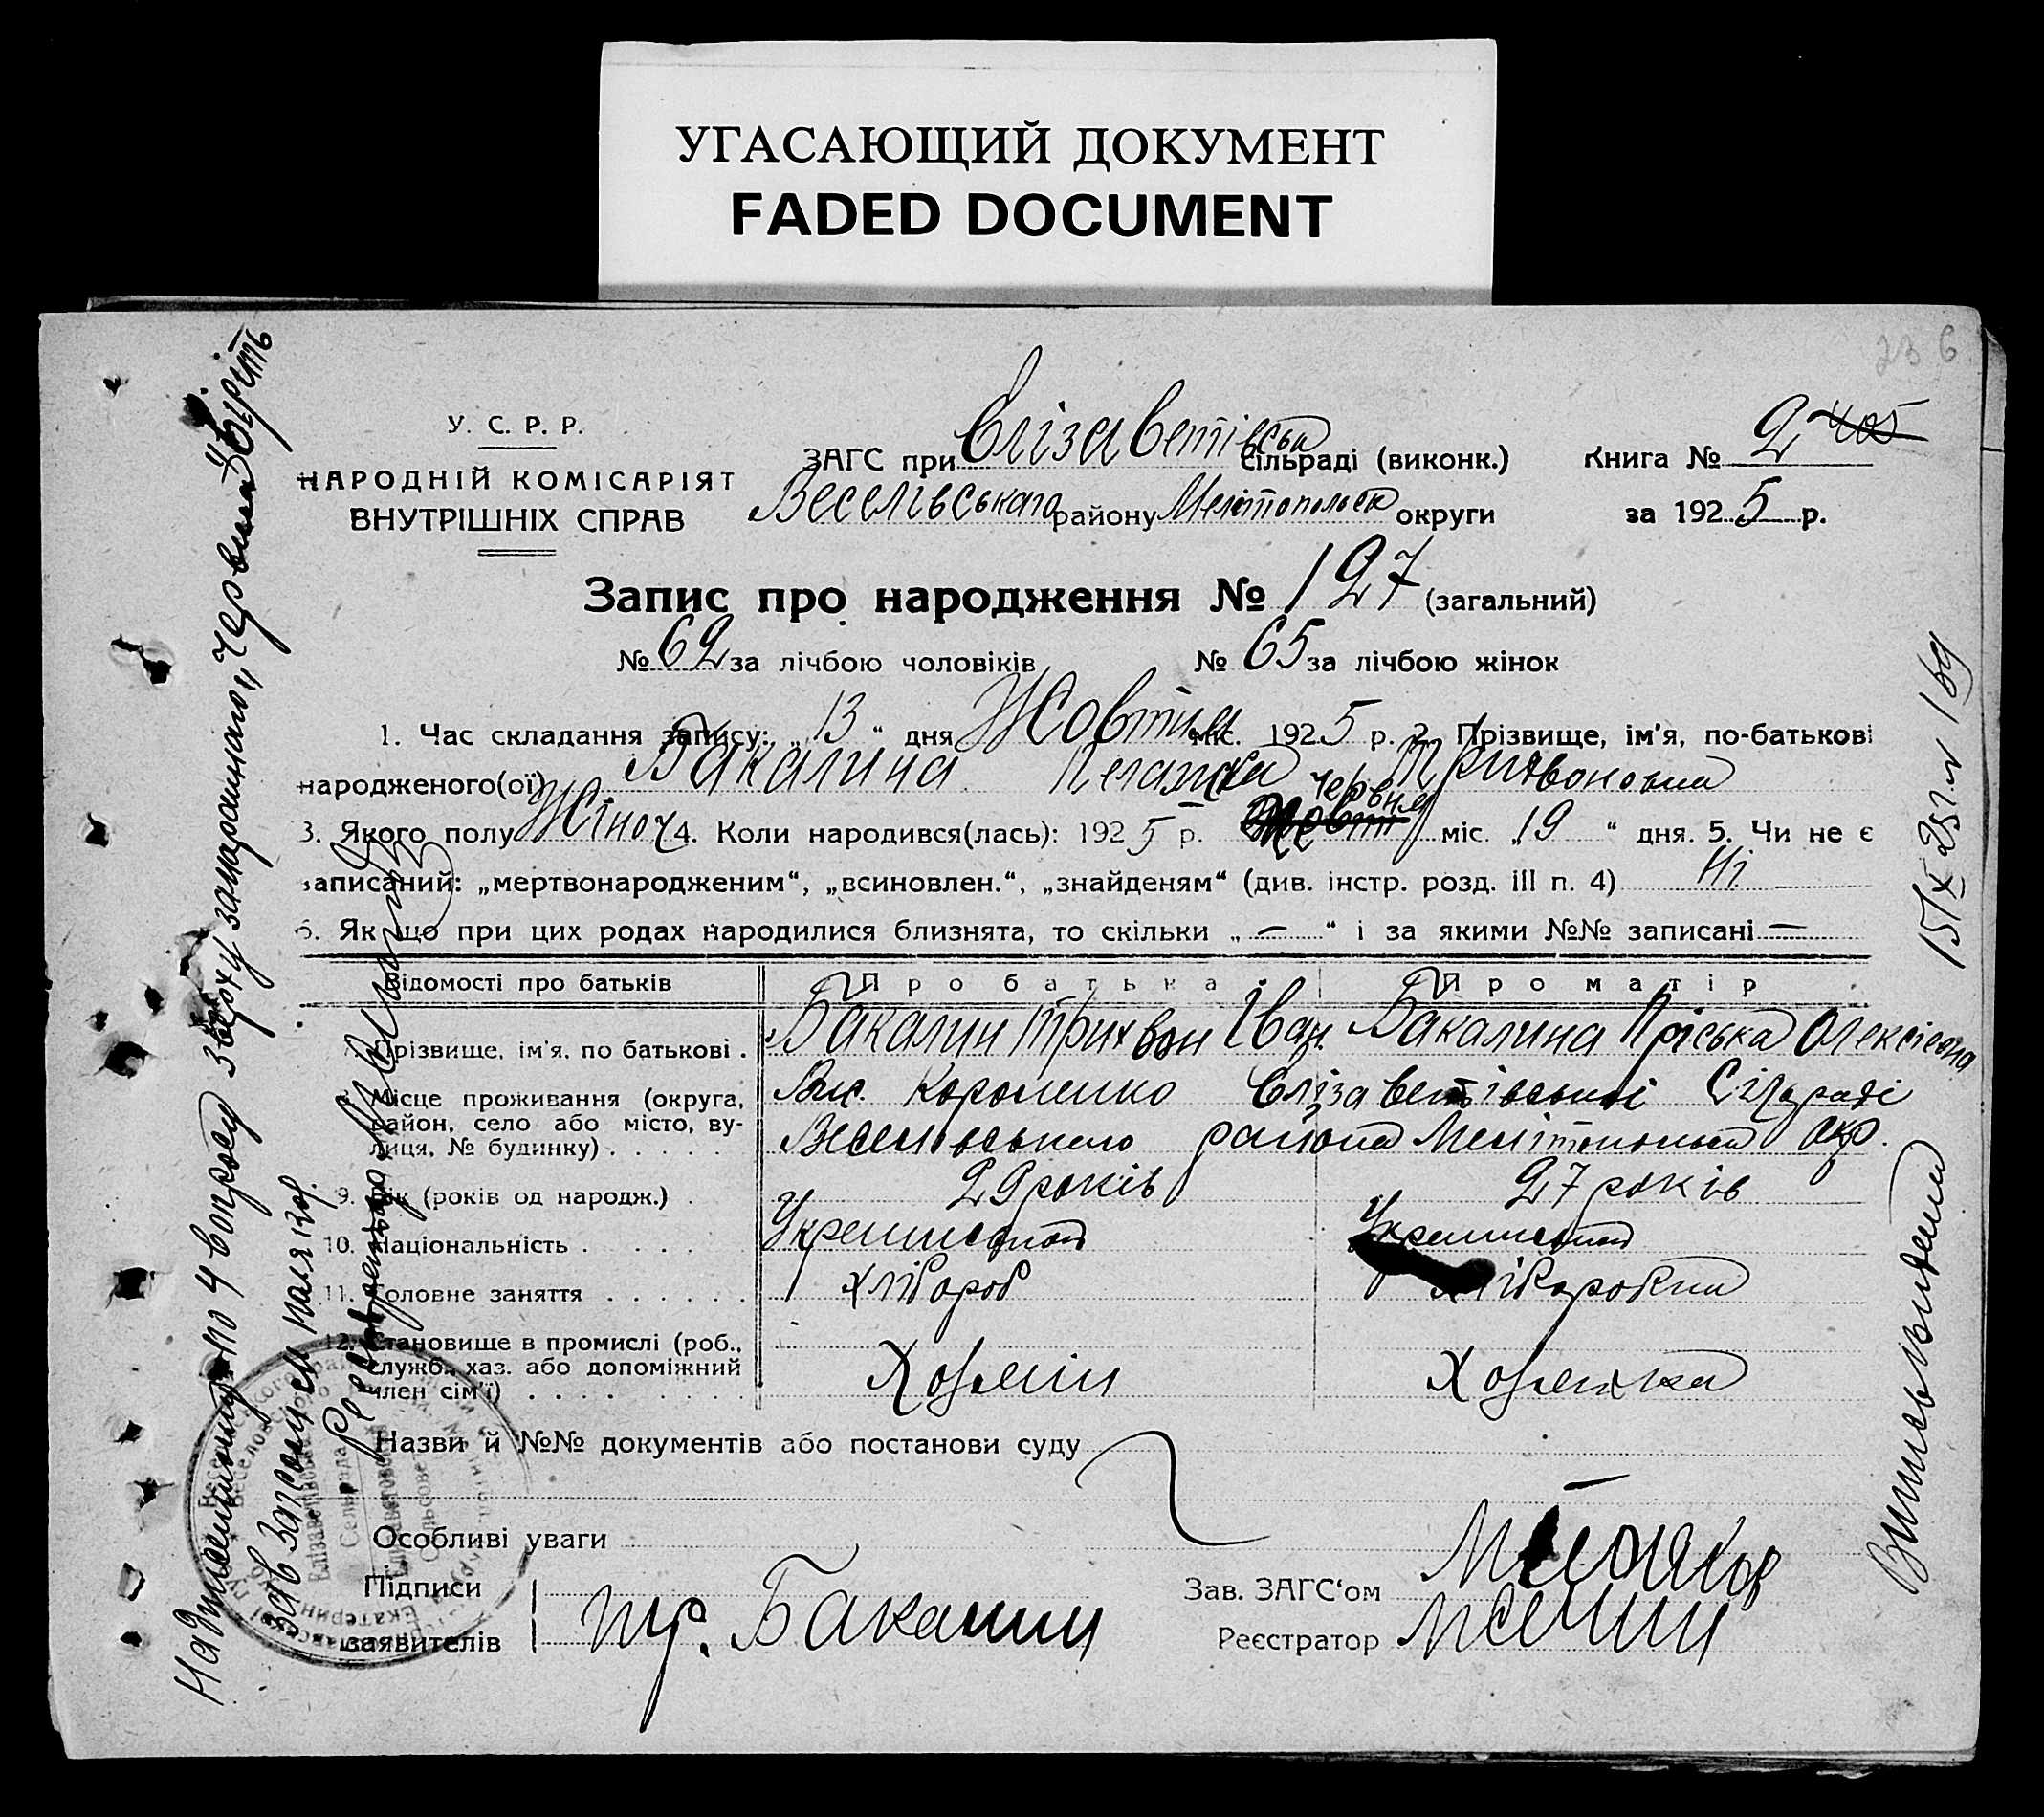 УГАСАЮЩИЙ ДОКУМЕНТ
FADED DOCUMENT
23 6
У. С. Р. Р.
НАРОДНІЙ КОМІСАРІЯТ
ВНУТРІШНІХ СПРАВ
ЗАГС при Єлізаветівськ сільраді (виконк.)
Веселівського району Мелітопольск округи
Книга № 2 405
за 1925 р.
Запис про народження № 127 (загальний)
№ 62 за лічбою чоловіків № 65 за лічбою жінок
1. Час складання запису: „ 13 “ дня Жовтня міс. 1925 р. 2. Прізвище, ім'я, по-батькові
народженого(ої) Бакалина Пелагея Трихвоновна
червня
3. Якого полу Жіноч 4. Коли народився(лась): 1925 р. Жовт міс. „19 “ дня. 5. Чи не є
записаний: „мертвонародженим“, „всиновлен.“, „знайденям“ (див. інстр. розд. III п. 4) Ні
6. Як що при цих родах народилися близнята, то скільки „ — “ і за якими №№ записані —
Відомості про батьків Про батька Про матір
7. Прізвище, ім'я, по батькові . Бакалин Трихвон Іван. Бакалина Пріська Олексієвна
8. Місце проживання (округа, район, село або місто, вулиця, № будинку) . . . . . Вис. Короленко Єлізаветівської Сільраді
Веселівського района Мелітопольск окр.
9. Вік (років од народж.) . 29 років 27 років
10. Національність . . . . .
11. Головне заняття . . . . . . Хлібороб Хлібаробка
12. Становище в промислі (роб., служб., хаз. або допоміжний член сім'ї) . . . . . . . Хозяін Хозяйка
Назви й №№ документів або постанови суду
Особливі уваги
Підписи
заявителів
Тр. Бакалин
Зав. ЗАГС'ом
Реєстратор
Надписанному по 4 вопросу зверху замараного „червня“ вірить
Зав Загсом
Реєстратор
15/X 25 г. № 169